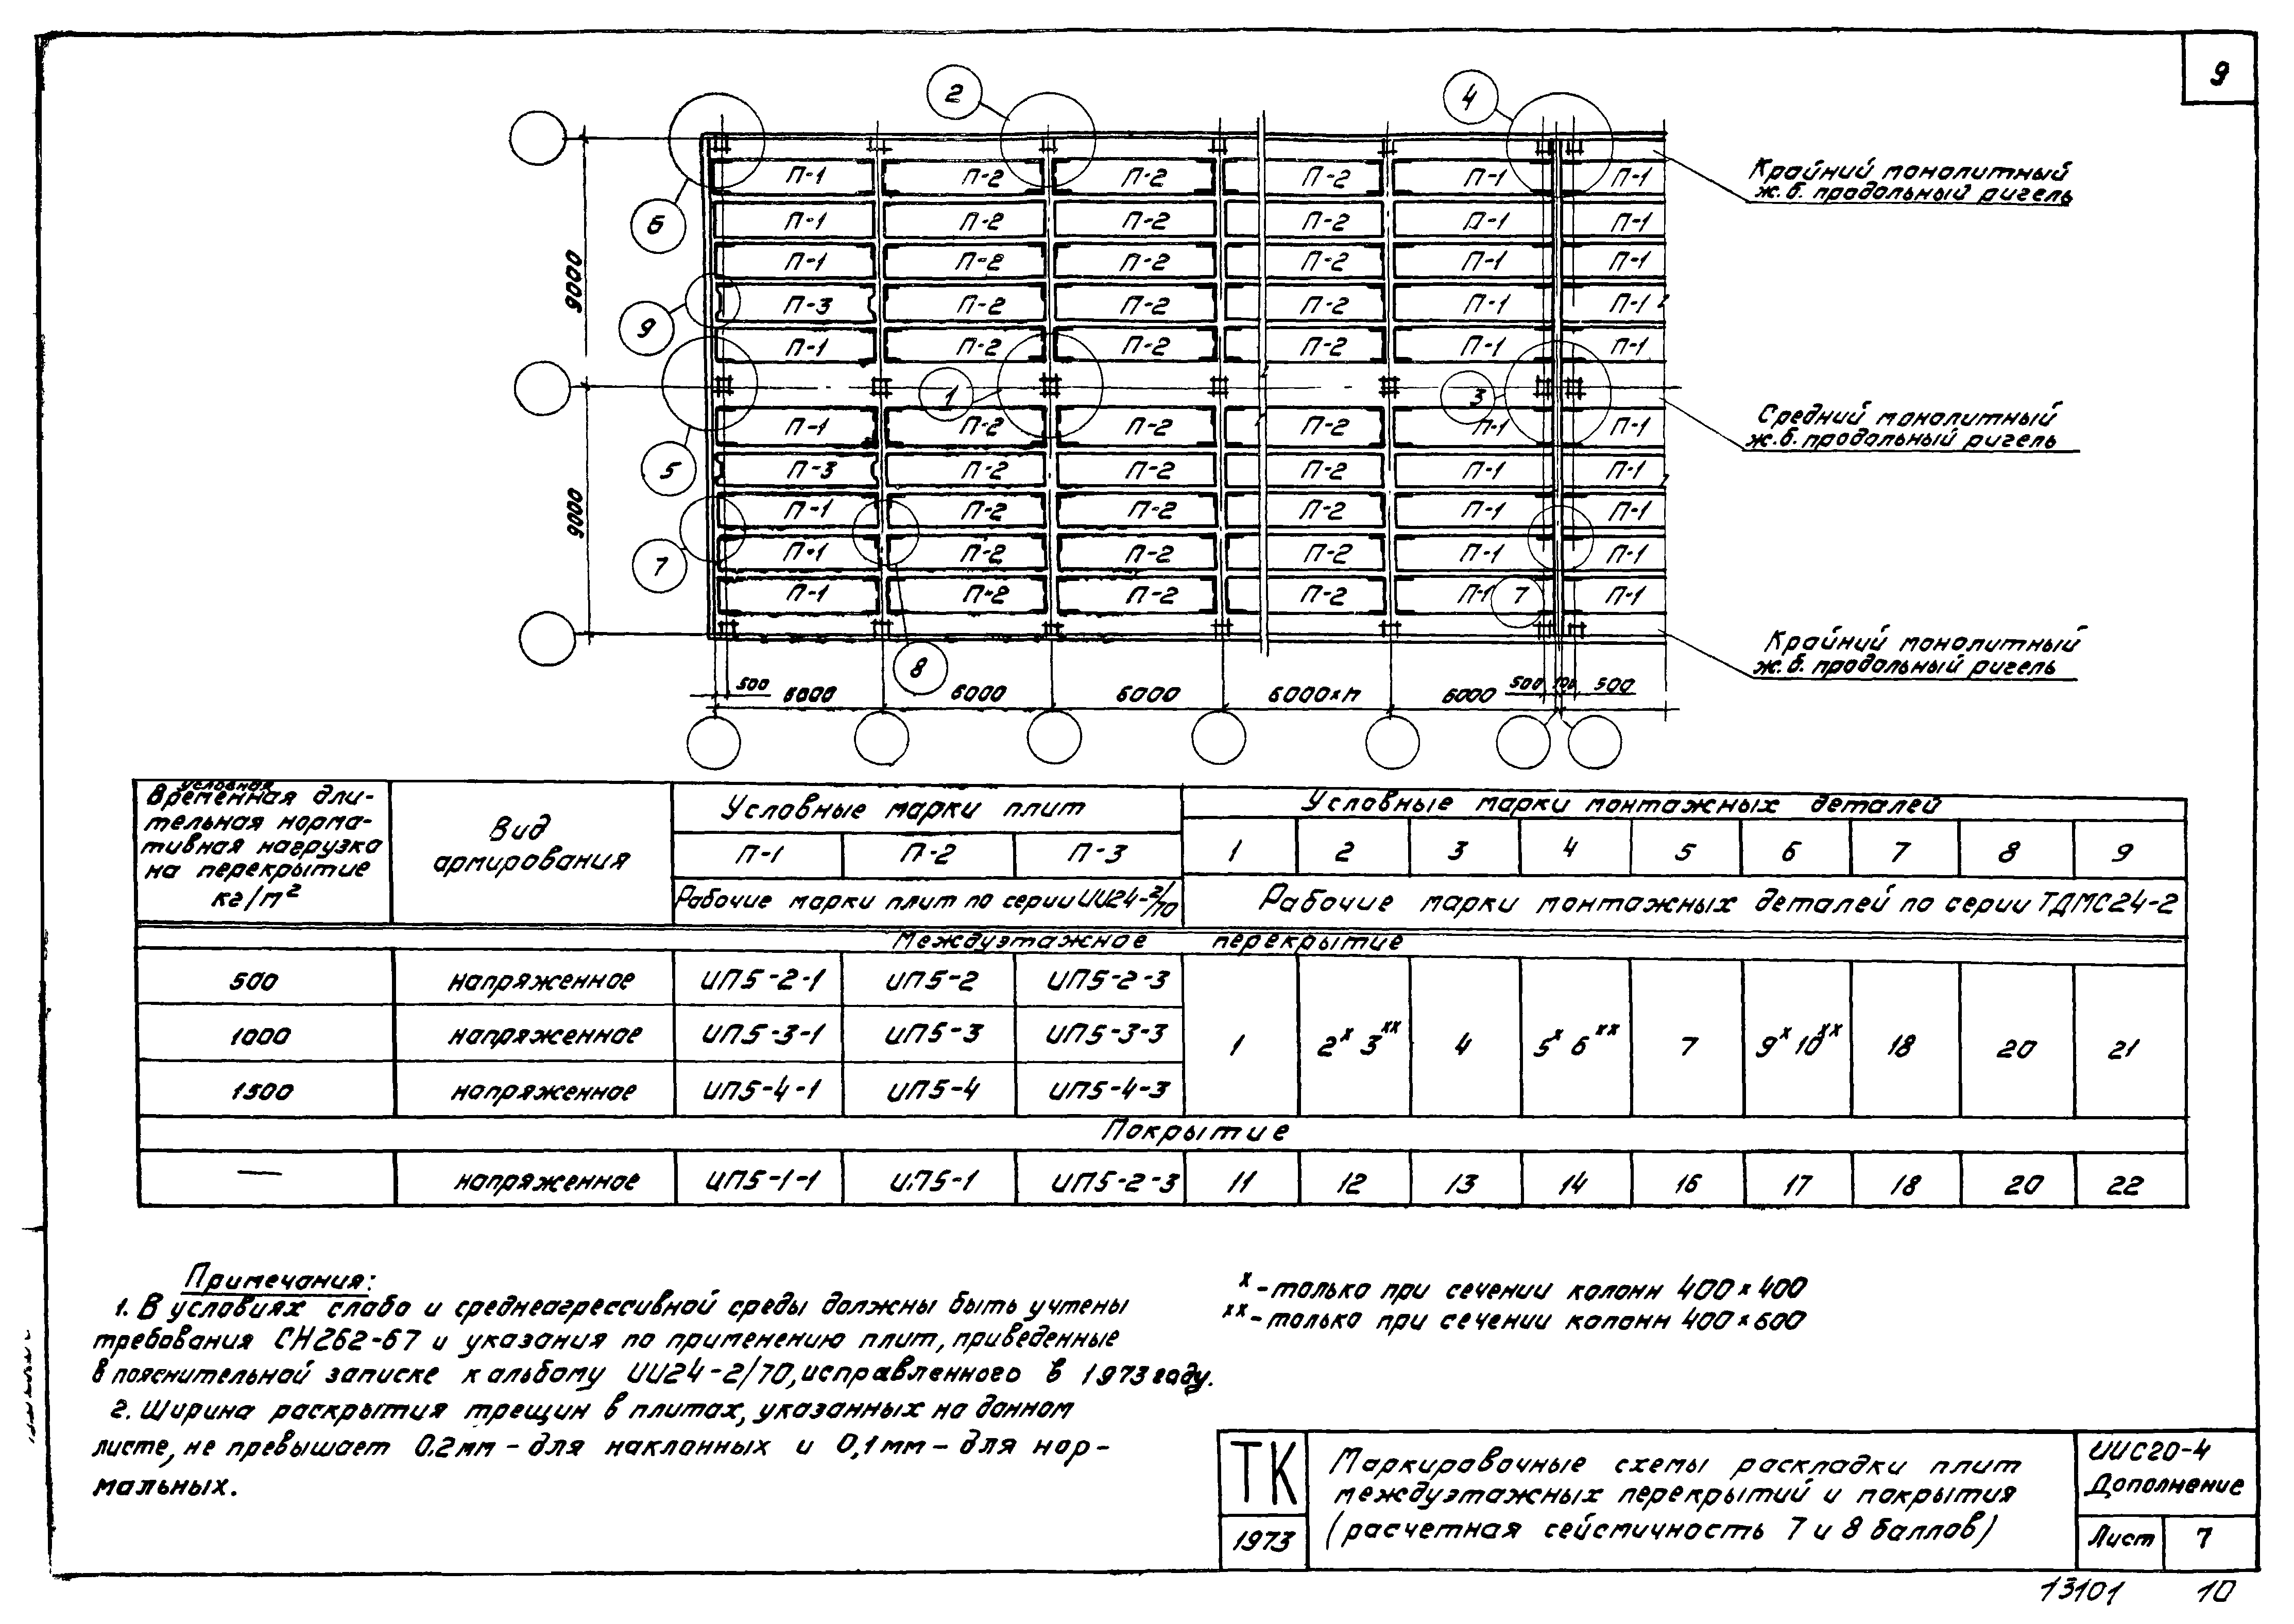 9
2
4
П-1 П-2 П-2 П-2 П-1 П-1
Крайний монолитный
ж.б. продольный ригель
6
П-1 П-2 П-2 П-2 П-1 П-1
9000
П-1 П-2 П-2 П-2 П-1 П-1
9
П-3 П-2 П-2 П-2 П-1 П-1
П-1 П-2 П-2 П-2 П-1 П-1
1
3
Средний монолитный
ж.б. продольный ригель
П-1 П-2 П-2 П-2 П-1 П-1
5
П-3 П-2 П-2 П-2 П-1 П-1
9000
П-1 П-2 П-2 П-2 П-1 П-1
7
П-1 П-2 П-2 П-2 П-1 П-1
П-1 П-2 П-2 П-2 П-1 7 П-1
8
Крайний монолитный
ж.б. продольный ригель
500 6000 6000 6000 6000×п 6000 500 100 500
условная
Временная дли-
тельная норма-
тивная нагрузка
на перекрытие
кг/м²
Вид
армирования
Условные марки плит
П-1 П-2 П-3
Рабочие марки плит по серии ИИ24-2/70
Условные марки монтажных деталей
1 2 3 4 5 6 7 8 9
Рабочие марки монтажных деталей по серии ТДМС24-2
Междуэтажное перекрытие
500 напряженное ИП5-2-1 ИП5-2 ИП5-2-3
1000 напряженное ИП5-3-1 ИП5-3 ИП5-3-3
1 2ˣ 3ˣˣ 4 5ˣ 6ˣˣ 7 9ˣ 10ˣˣ 18 20 21
1500 напряженное ИП5-4-1 ИП5-4 ИП5-4-3
Покрытие
— напряженное ИП5-1-1 ИП5-1 ИП5-2-3 11 12 13 14 16 17 18 20 22
Примечания:
1. В условиях слабо и среднеагрессивной среды должны быть учтены
требования СН262-67 и указания по применению плит, приведенные
в пояснительной записке к альбому ИИ24-2/70, исправленного в 1973 году.
2. Ширина раскрытия трещин в плитах, указанных на данном
листе, не превышает 0.2мм - для наклонных и 0,1мм - для нор-
мальных.
ˣ - только при сечении колонн 400×400
ˣˣ - только при сечении колонн 400×600
ТК
1973
Маркировочные схемы раскладки плит
междуэтажных перекрытий и покрытия
(расчетная сейсмичность 7 и 8 баллов)
ИИС20-4
Дополнение
Лист 7
13101 10